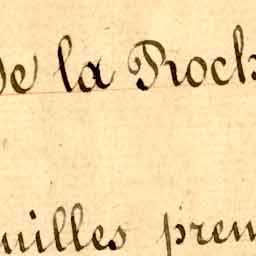 de la Roch
uilles pren